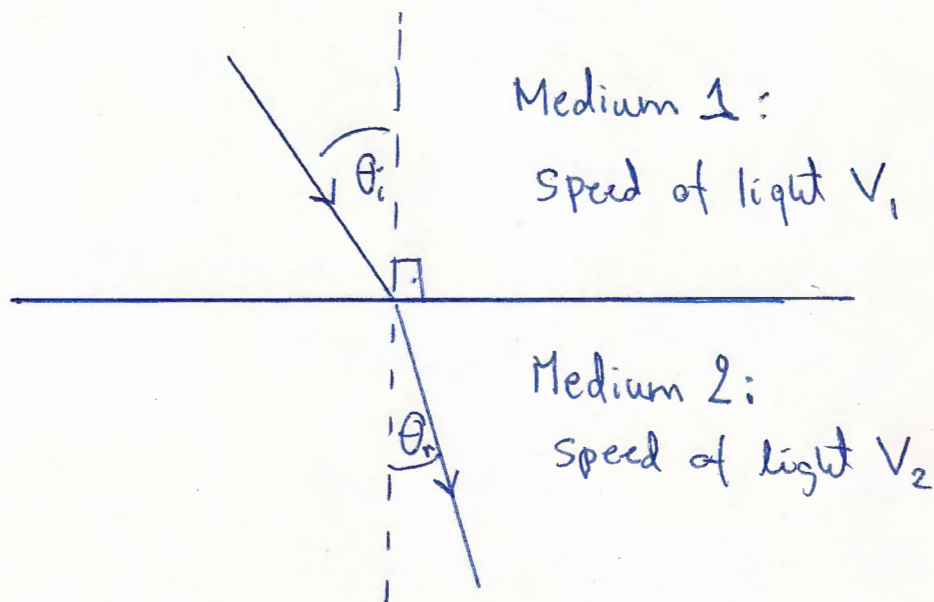 Medium 1:
Speed of light V₁
θᵢ
Medium 2:
Speed of light V₂
θᵣ